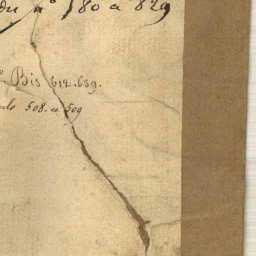 du n° 780 a 829
Bis 612.639.
508. a 509